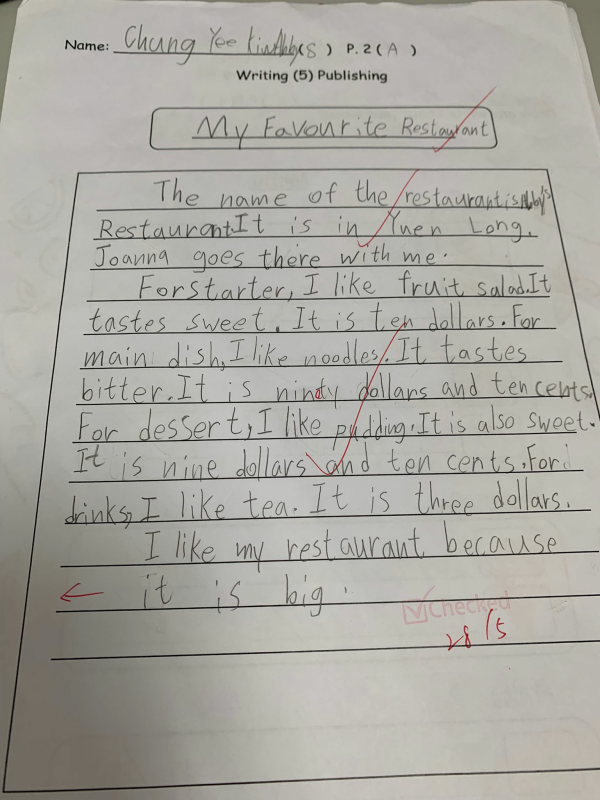 Name: Chung Yee Kiu Abby (S) P.2 (A)
Writing (5) Publishing
My Favourite Restaurant
The name of the restaurant is Abby's
Restaurant. It is in Yuen Long.
Joanna goes there with me.
For starter, I like fruit salad. It
tastes sweet. It is ten dollars. For
main dish, I like noodles. It tastes
bitter. It is ninety dollars and ten cents.
For dessert, I like pudding. It is also sweet.
It is nine dollars and ten cents. For
drinks, I like tea. It is three dollars.
I like my restaurant because
it is big.
Checked
28/5